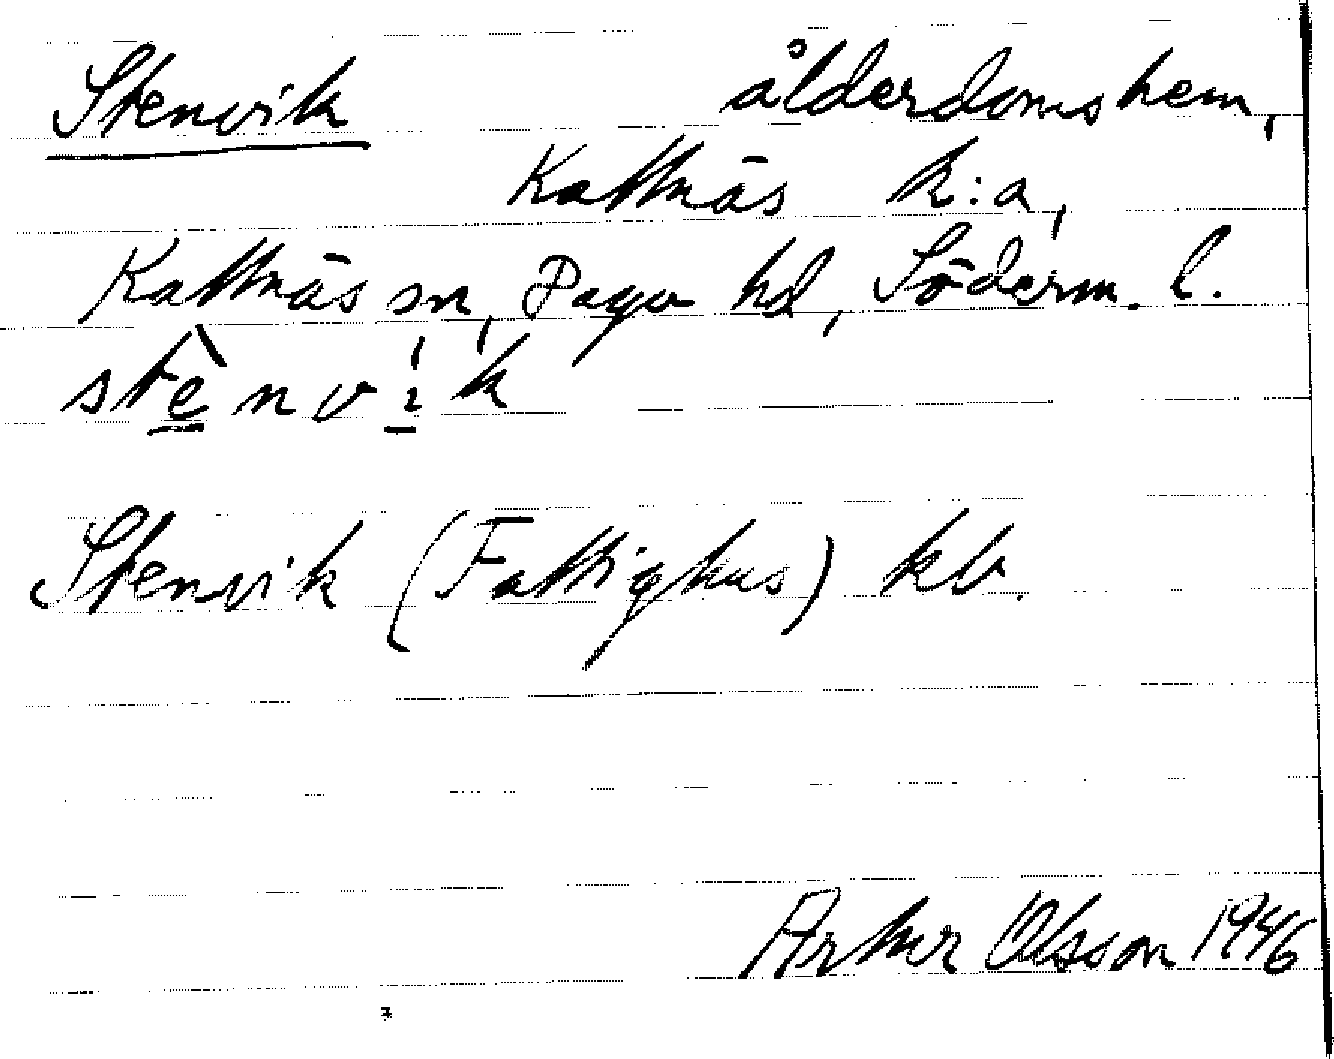 Stenvik ålderdomshem,
Kattnäs k:a,
Kattnäs sn, Daga hd, Söderm. l.
stènvík
Stenvik (Fattighus) kb.
Arthur Olsson 1946